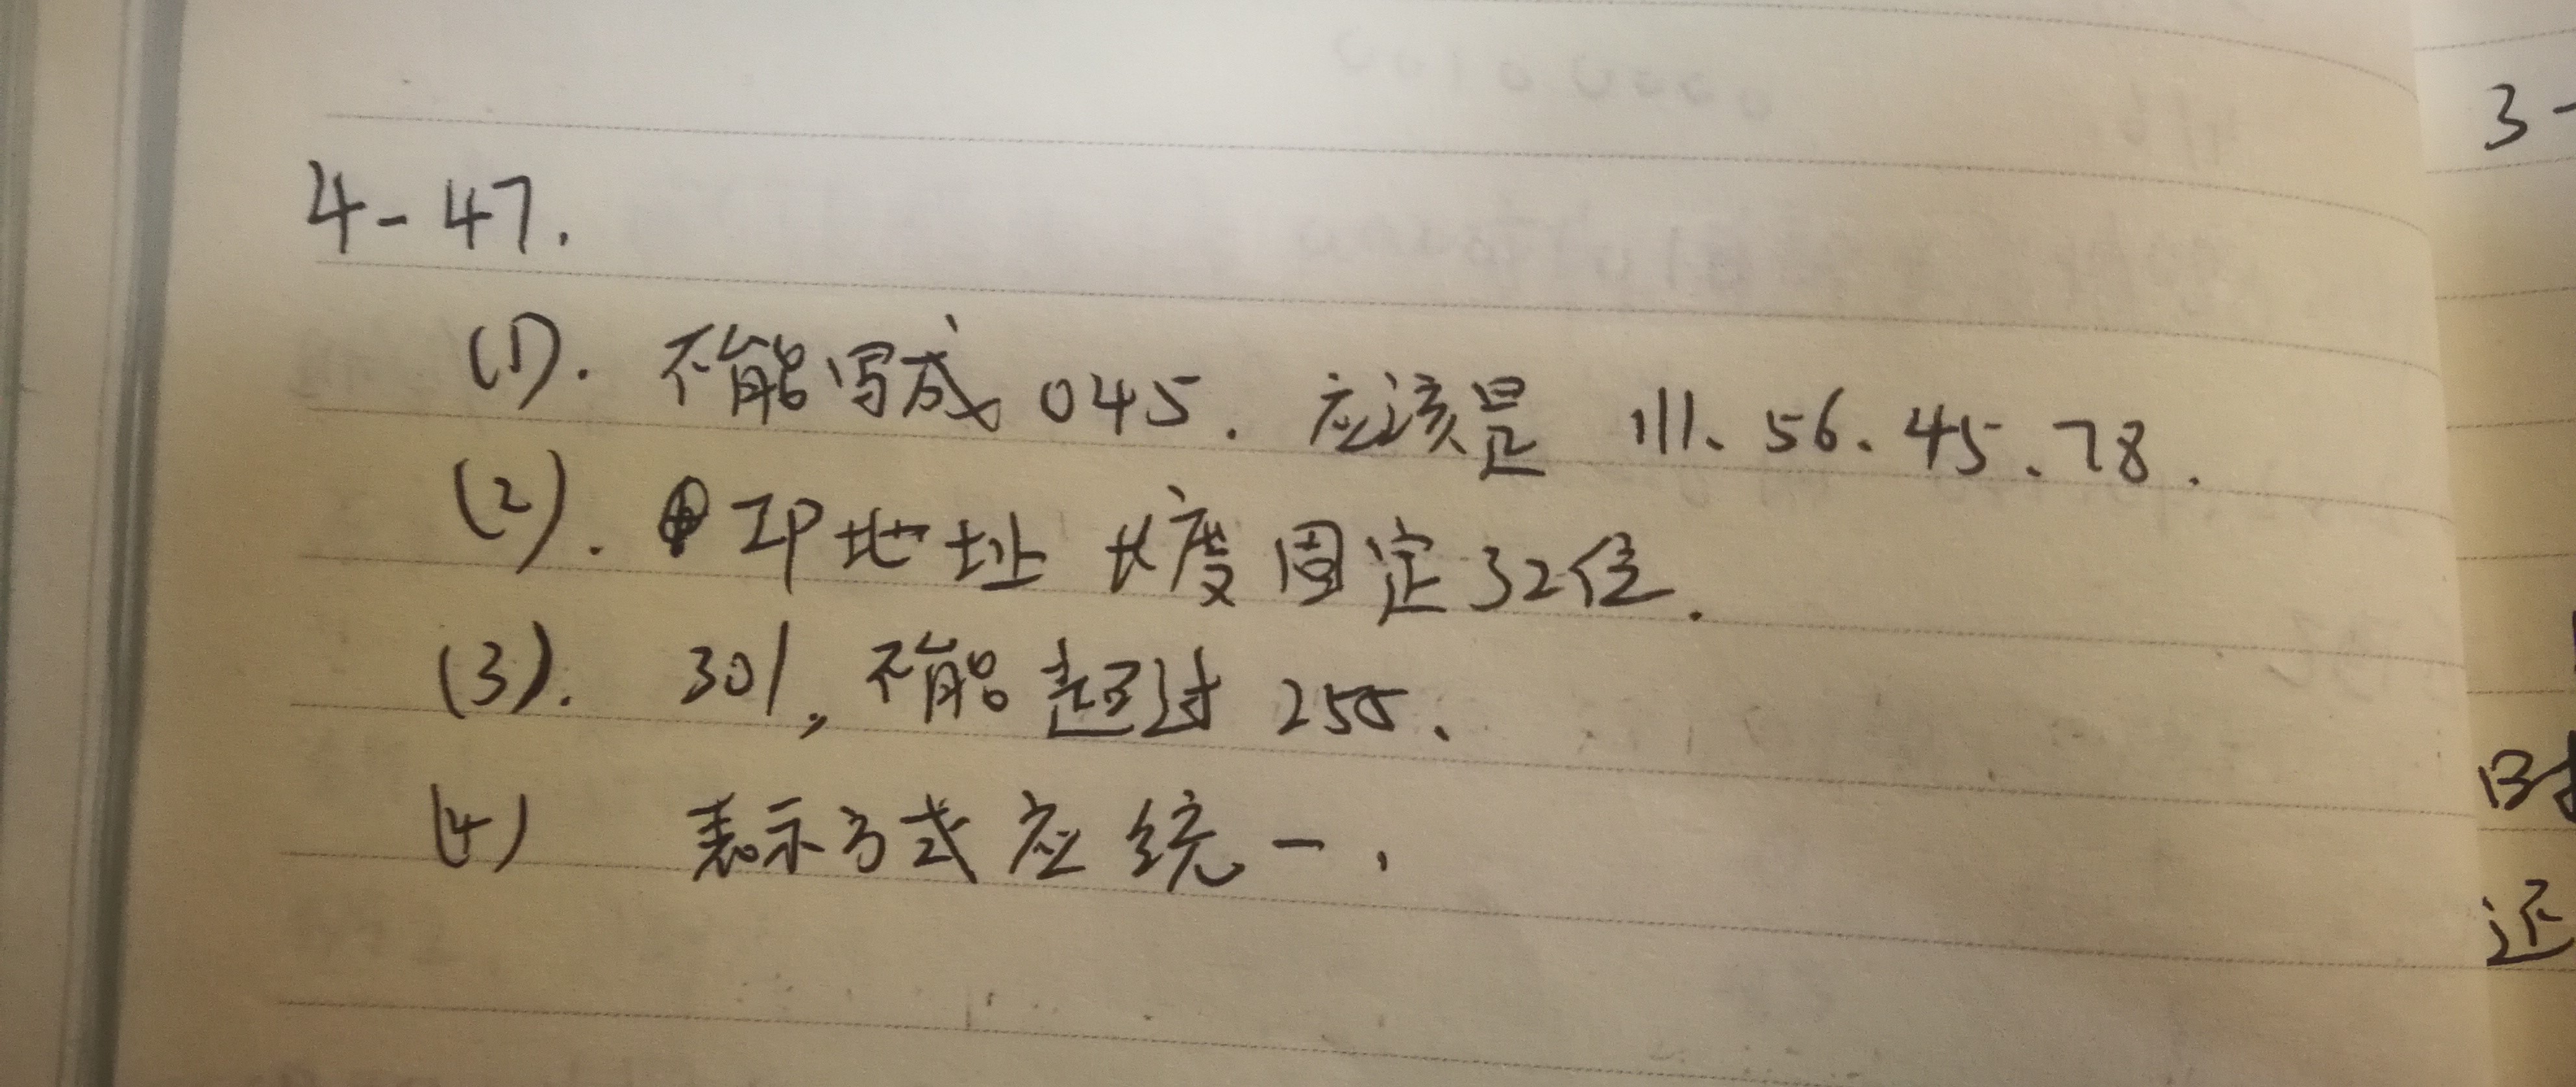 4-47.
(1). 不能写成 045. 应该是 111.56.45.78.
(2). IP地址 长度固定32位.
(3). 301, 不能超过 255.
(4) 表示方式应统一.
3-
还